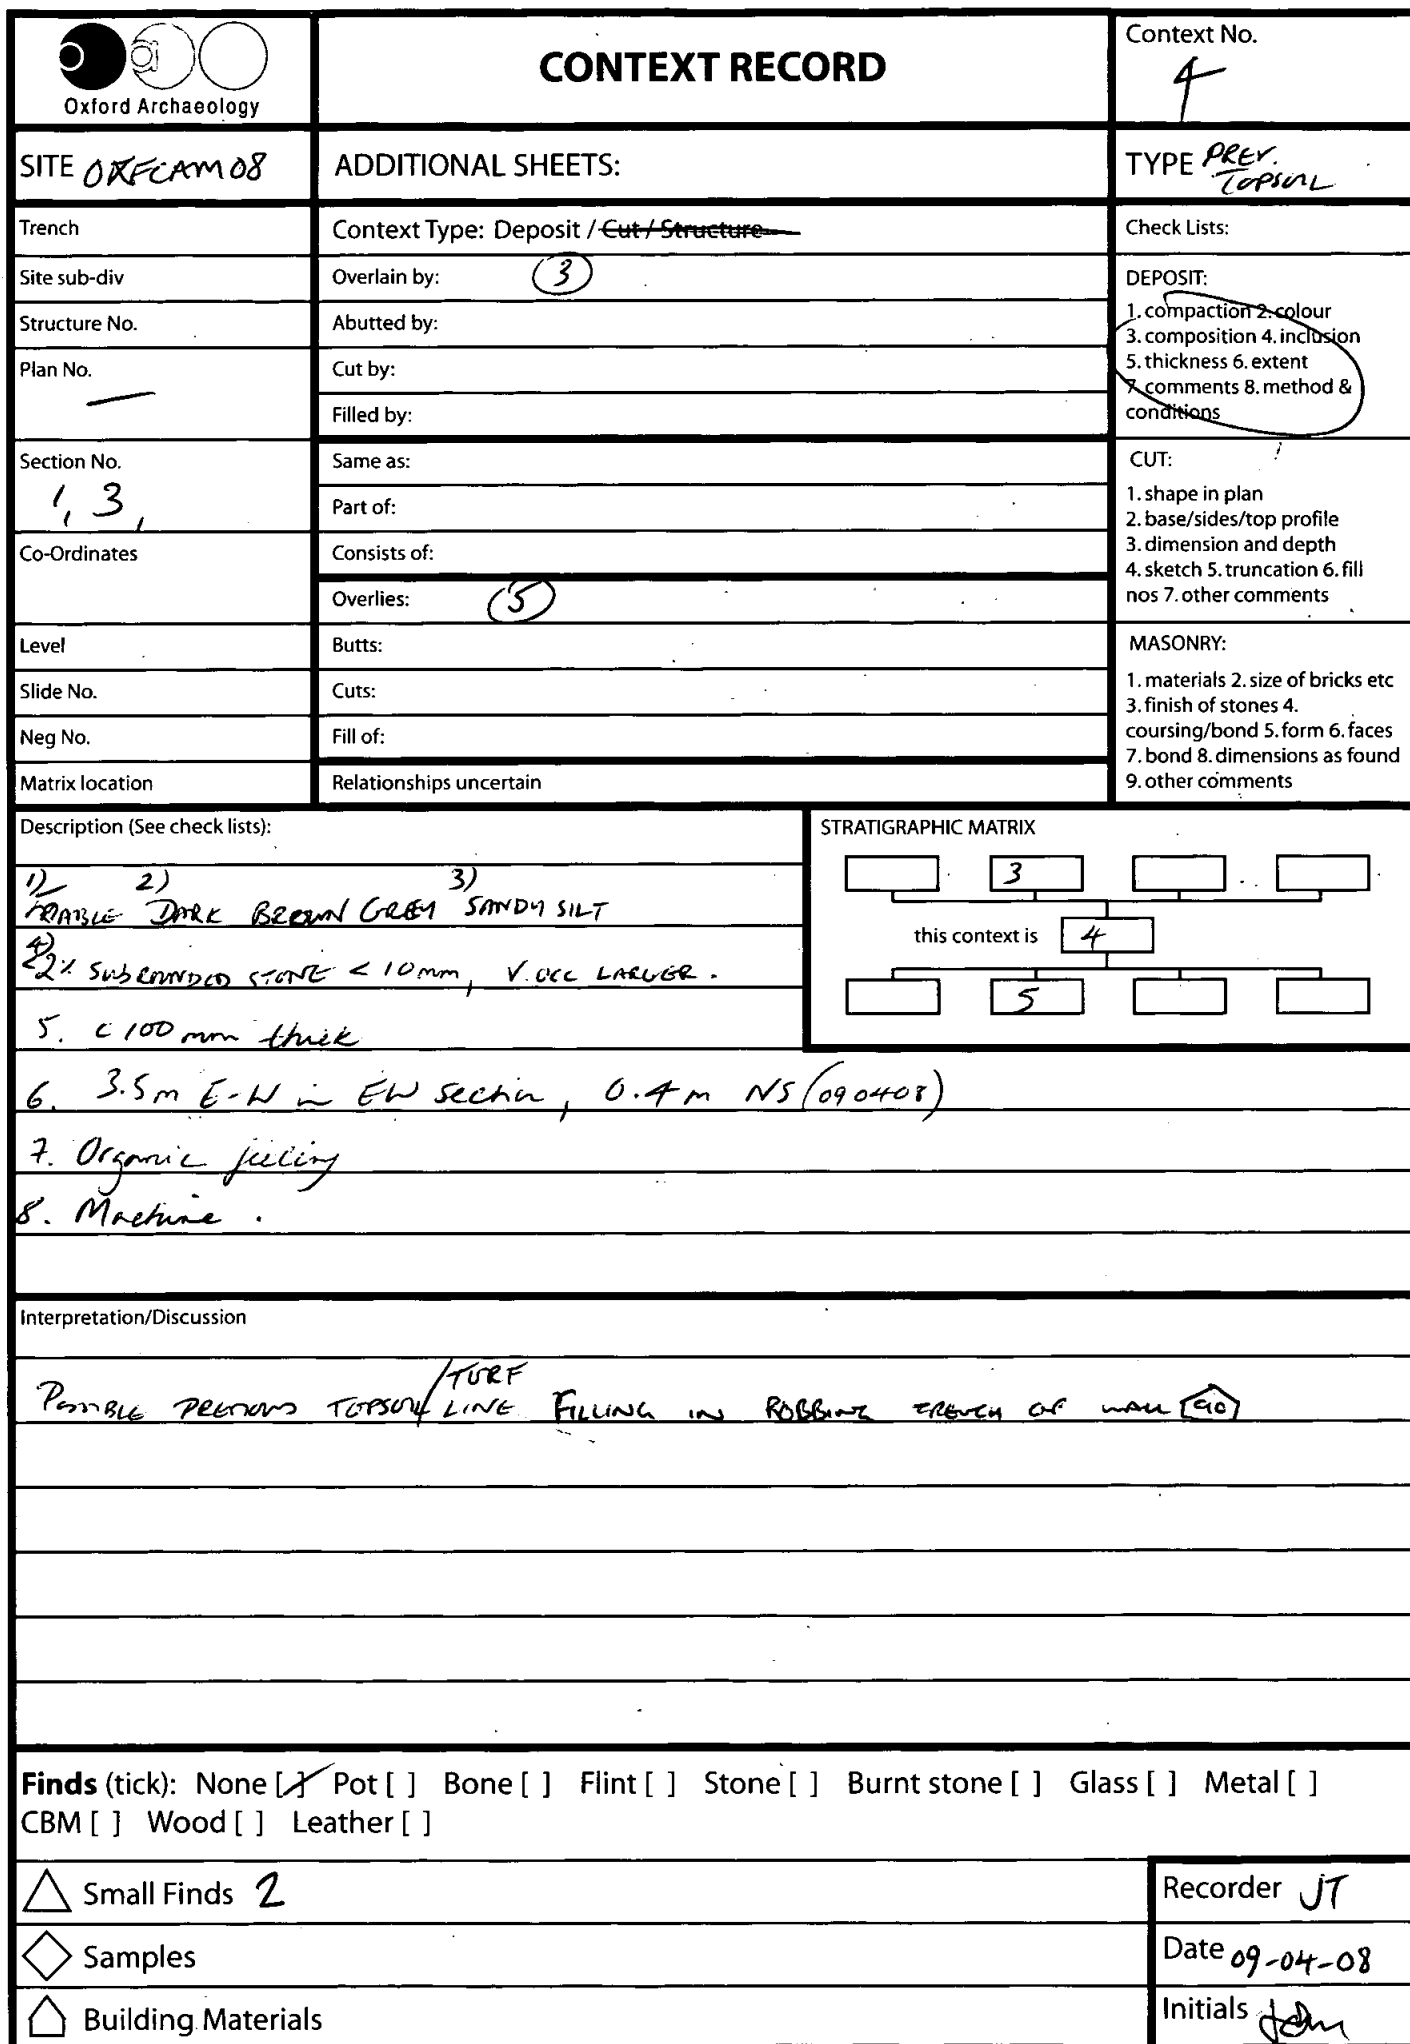 Oxford Archaeology
CONTEXT RECORD
Context No.
4
SITE OXFCAM08
ADDITIONAL SHEETS:
TYPE PREV.
TOPSOIL
Trench
Site sub-div
Structure No.
Plan No.
—
Section No.
1, 3,
Co-Ordinates
Level
Slide No.
Neg No.
Matrix location
Context Type: Deposit / Cut / Structure
Overlain by: 3
Abutted by:
Cut by:
Filled by:
Same as:
Part of:
Consists of:
Overlies: 5
Butts:
Cuts:
Fill of:
Relationships uncertain
Check Lists:
DEPOSIT:
1. compaction 2. colour
3. composition 4. inclusion
5. thickness 6. extent
7. comments 8. method &
conditions
CUT:
1. shape in plan
2. base/sides/top profile
3. dimension and depth
4. sketch 5. truncation 6. fill
nos 7. other comments
MASONRY:
1. materials 2. size of bricks etc
3. finish of stones 4.
coursing/bond 5. form 6. faces
7. bond 8. dimensions as found
9. other comments
Description (See check lists):
1) 2) 3)
FRIABLE DARK BROWN GREY SANDY SILT
4)
<2% SUBROUNDED STONE < 10mm, V. OCC LARGER.
5. c 100 mm thick
6. 3.5m E-W in EW section, 0.4m NS (090408)
7. Organic feeling
8. Machine.
STRATIGRAPHIC MATRIX
3
this context is 4
5
Interpretation/Discussion
POSSIBLE PREVIOUS TOPSOIL/TURF LINE FILLING IN ROBBING TRENCH OF WALL
Finds (tick): None [ ] Pot [ ] Bone [ ] Flint [ ] Stone [ ] Burnt stone [ ] Glass [ ] Metal [ ]
CBM [ ] Wood [ ] Leather [ ]
Small Finds 2
Samples
Building Materials
Recorder JT
Date 09-04-08
Initials